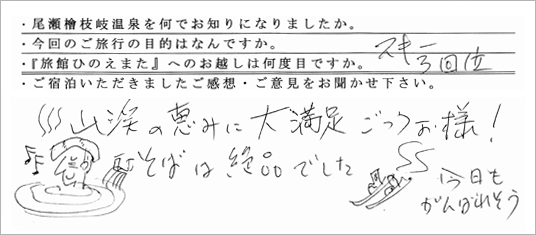 ・尾瀬檜枝岐温泉を何でお知りになりましたか。
・今回のご旅行の目的はなんですか。 スキー
・『旅館ひのえまた』へのお越しは何度目ですか。 3回位
・ご宿泊いただきましたご感想・ご意見をお聞かせ下さい。
山渓の恵みに大満足 ごっつお様！
そばは絶品でした
今日も
がんばれそう